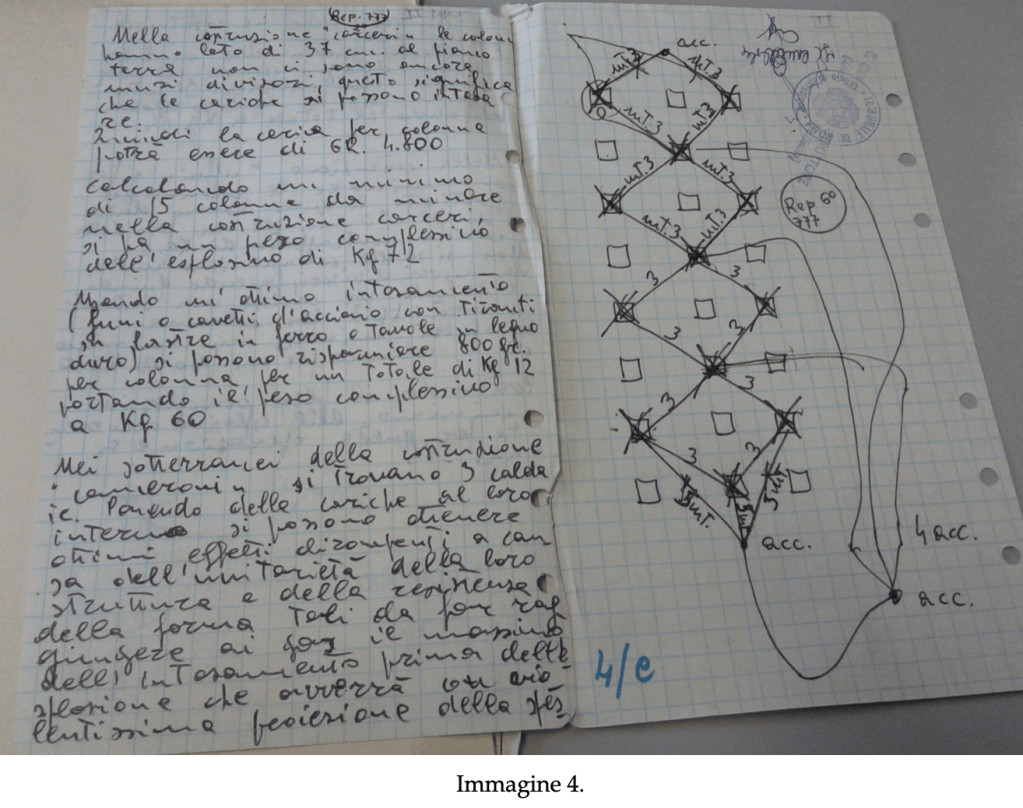 Rep. 777
Nella costruzione "carceri" le colonne
hanno lato di 37 cm. al piano
terra non ci sono ancora
muri divisori, questo significa
che le cariche si possono intasa
re.
Quindi la carica per colonna
potrà essere di Gr. 4.800
Calcolando un minimo
di 15 colonne da minare
nella costruzione carceri,
si ha un peso complessivo
dell'esplosivo di Kg 72
Usando un'ottimo intasamento
(funi o cavetti d'acciaio con tiranti
su lastre in ferro o tavole in legno
duro) si possono risparmiare 800 gr.
per colonna, per un totale di Kg 12
portando il peso complessivo
a Kg 60
Nei sotterranei della costruzione
"cameroni" si trovano 3 calda
ie. Ponendo delle cariche al loro
interno si possono ottenere
ottimi effetti dirompenti a cau
sa dell'unitarietà della loro
struttura e della resistenza
della forma tali da far rag
giungere ai gas il massimo
dell'intasamento prima dell'e
splosione che avverrà con vio
lentissima proiezione della
acc.
mT.3
mT.3
mT.3
mT.3
mT.3
mT.3
mT.3
mT.3
Rep 60
777
3
3
3
3
3
3
3
3
acc.
4 acc.
acc.
4/c
Immagine 4.